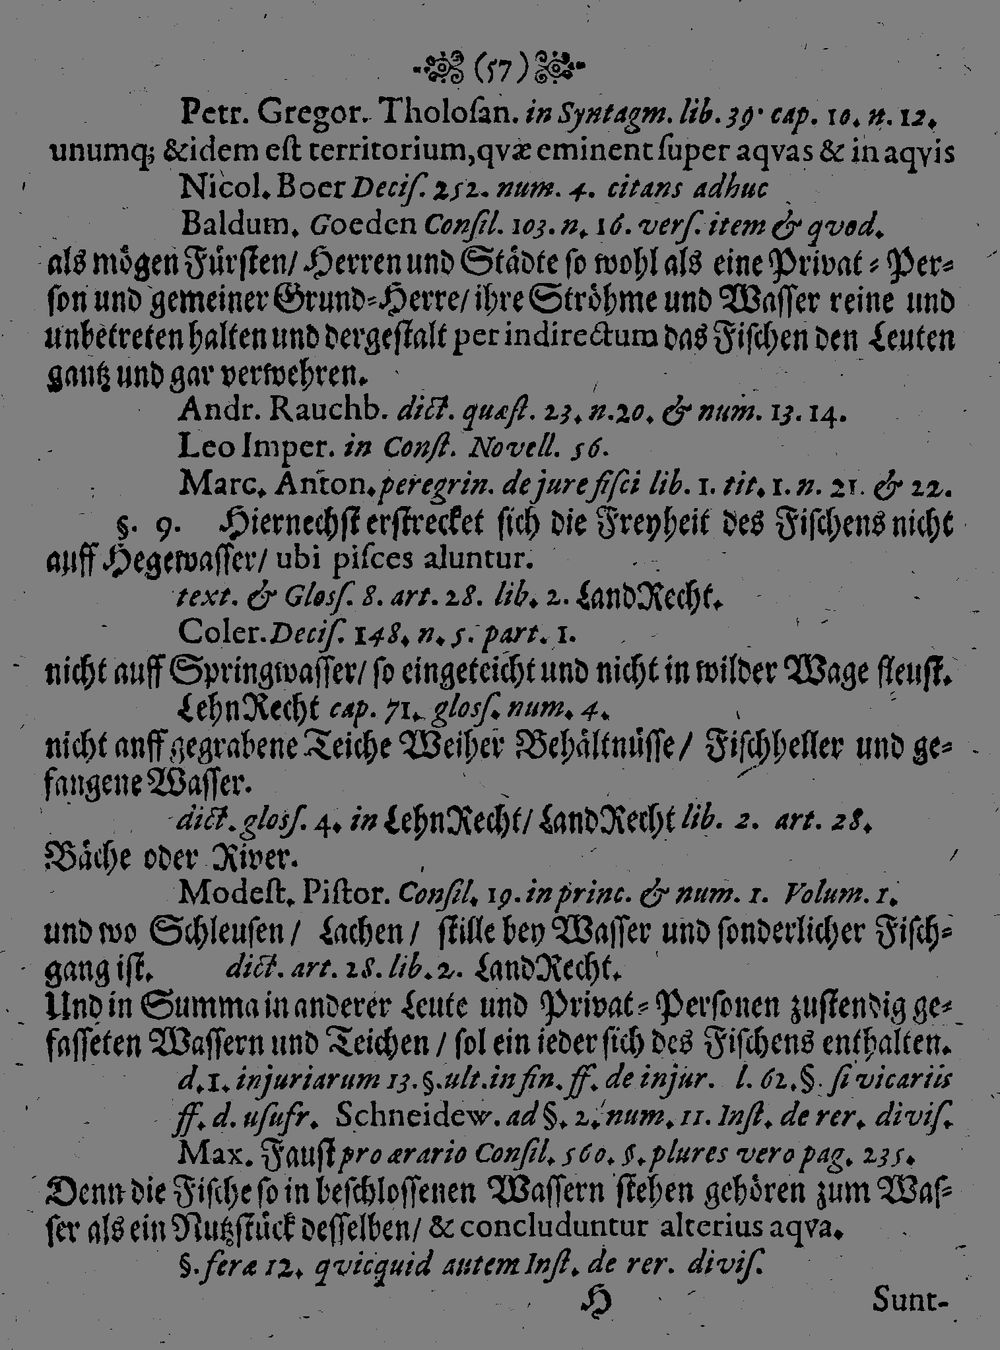 (57)
Petr. Gregor. Tholoſan. in Syntagm. lib. 39. cap. 10. n. 12.
unumq; &idem eſt territorium, qvæ eminent ſuper aqvas & in aqvis
Nicol. Boer Deciſ. 252. num. 4. citans adhuc
Baldum. Goeden Conſil. 103. n. 16. verſ. item & qvod.
als mögen Fürſten/ Herren und Städte ſo wohl als eine Privat⸗Per⸗
ſon und gemeiner Grund⸗Herre/ ihre Ströhme und Waſſer reine und
unbetreten halten und dergeſtalt per indirectum das Fiſchen den Leuten
gantz und gar verwehren.
Andr. Rauchb. dict. quæſt. 23. n. 20. & num. 13. 14.
Leo Imper. in Conſt. Novell. 56.
Marc. Anton. peregrin. de jure fiſci lib. 1. tit. 1. n. 21. & 22.
§. 9. Hiernechſt erſtrecket ſich die Freyheit des Fiſchens nicht
auff Hegewaſſer/ ubi piſces aluntur.
text. & Gloſſ. 8. art. 28. lib. 2. LandRecht.
Coler. Deciſ. 148. n. 5. part. 1.
nicht auff Springwaſſer/ ſo eingeteicht und nicht in wilder Wage fleuſt.
LehnRecht cap. 71. gloſſ. num. 4.
nicht anff gegrabene Teiche Weiher Behältnüſſe/ Fiſchheller und ge⸗
fangene Waſſer.
dict. gloſſ. 4. in LehnRecht/ LandRecht lib. 2. art. 28.
Bäche oder River.
Modeſt. Piſtor. Conſil. 19. in princ. & num. 1. Volum. 1.
und wo Schleuſen/ Lachen/ ſtille bey Waſſer und ſonderlicher Fiſch⸗
gang iſt. dict. art. 28. lib. 2. LandRecht.
Und in Summa in anderer Leute und Privat⸗Perſonen zuſtendig ge⸗
faſſeten Waſſern und Teichen/ ſol ein ieder ſich des Fiſchens enthalten.
d. 1. injuriarum 13. §. ult. in fin. ff. de injur. l. 62. §. ſi vicariis
ff. d. uſufr. Schneidew. ad §. 2. num. 11. Inſt. de rer. diviſ.
Max. Fauſt pro ærario Conſil. 560. §. plures vero pag. 235.
Denn die Fiſche ſo in beſchloſſenen Waſſern ſtehen gehören zum Waſ⸗
ſer als ein Nutzſtück deſſelben/ & concluduntur alterius aqva.
§. feræ 12. qvicquid autem Inſt. de rer. diviſ.
H Sunt-